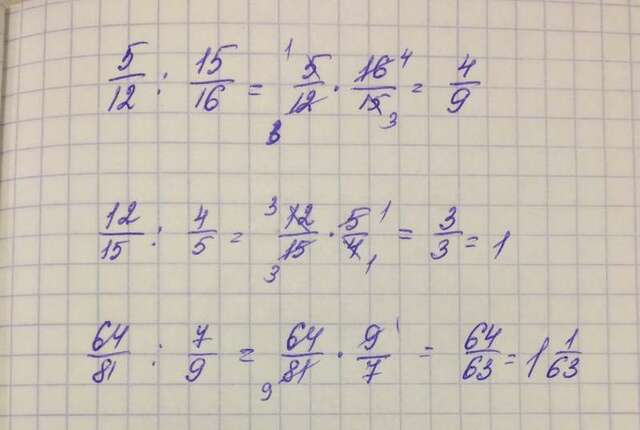 5/12 : 15/16 = 5/12 · 16/15 = 4/9
12/15 : 4/5 = 12/15 · 5/4 = 3/3 = 1
64/81 : 7/9 = 64/81 · 9/7 = 64/63 = 1 1/63